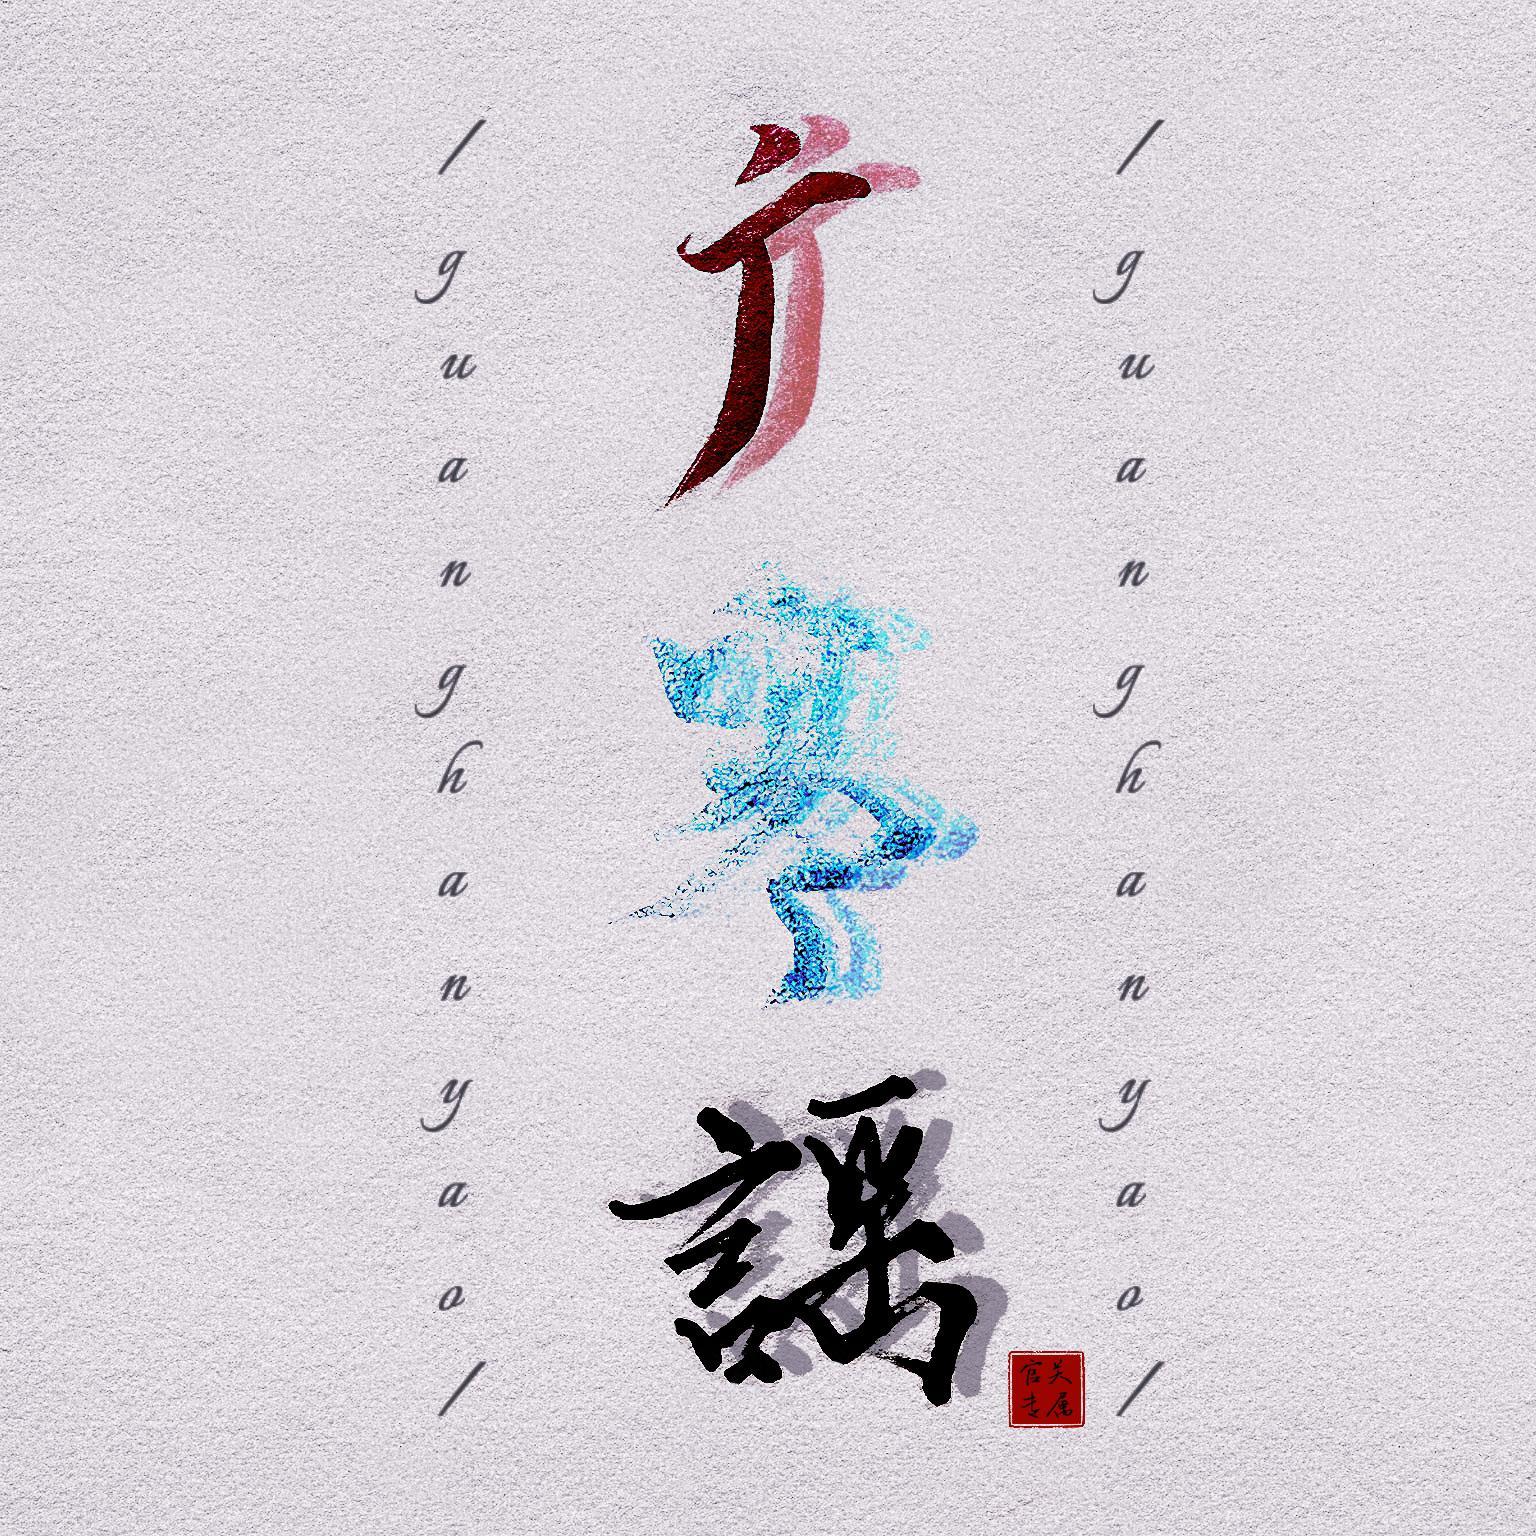 /guanghanyao/
广寒謠
/guanghanyao/
官关
专属